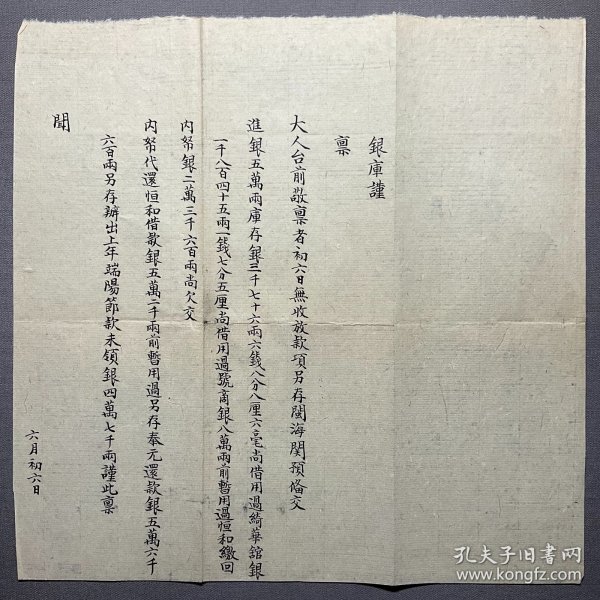 銀庫謹
稟
大人台前敬稟者初六日無收放款項另存閩海關預備交
進銀五萬兩庫存銀三千七十六兩六錢八分八厘六毫尚借用過綺華舘銀
一千八百四十五兩一錢七分五厘尚借用過號商銀八萬兩前暫用過恒和繳回
內帑銀二萬三千六百兩尚欠交
內帑代還恒和借款銀五萬二千兩前暫用過另存奉元還款銀五萬六千
六百兩另存辦出上年端陽節款未領銀四萬七千兩謹此稟
聞
六月初六日
孔夫子旧书网
www.kongfz.com